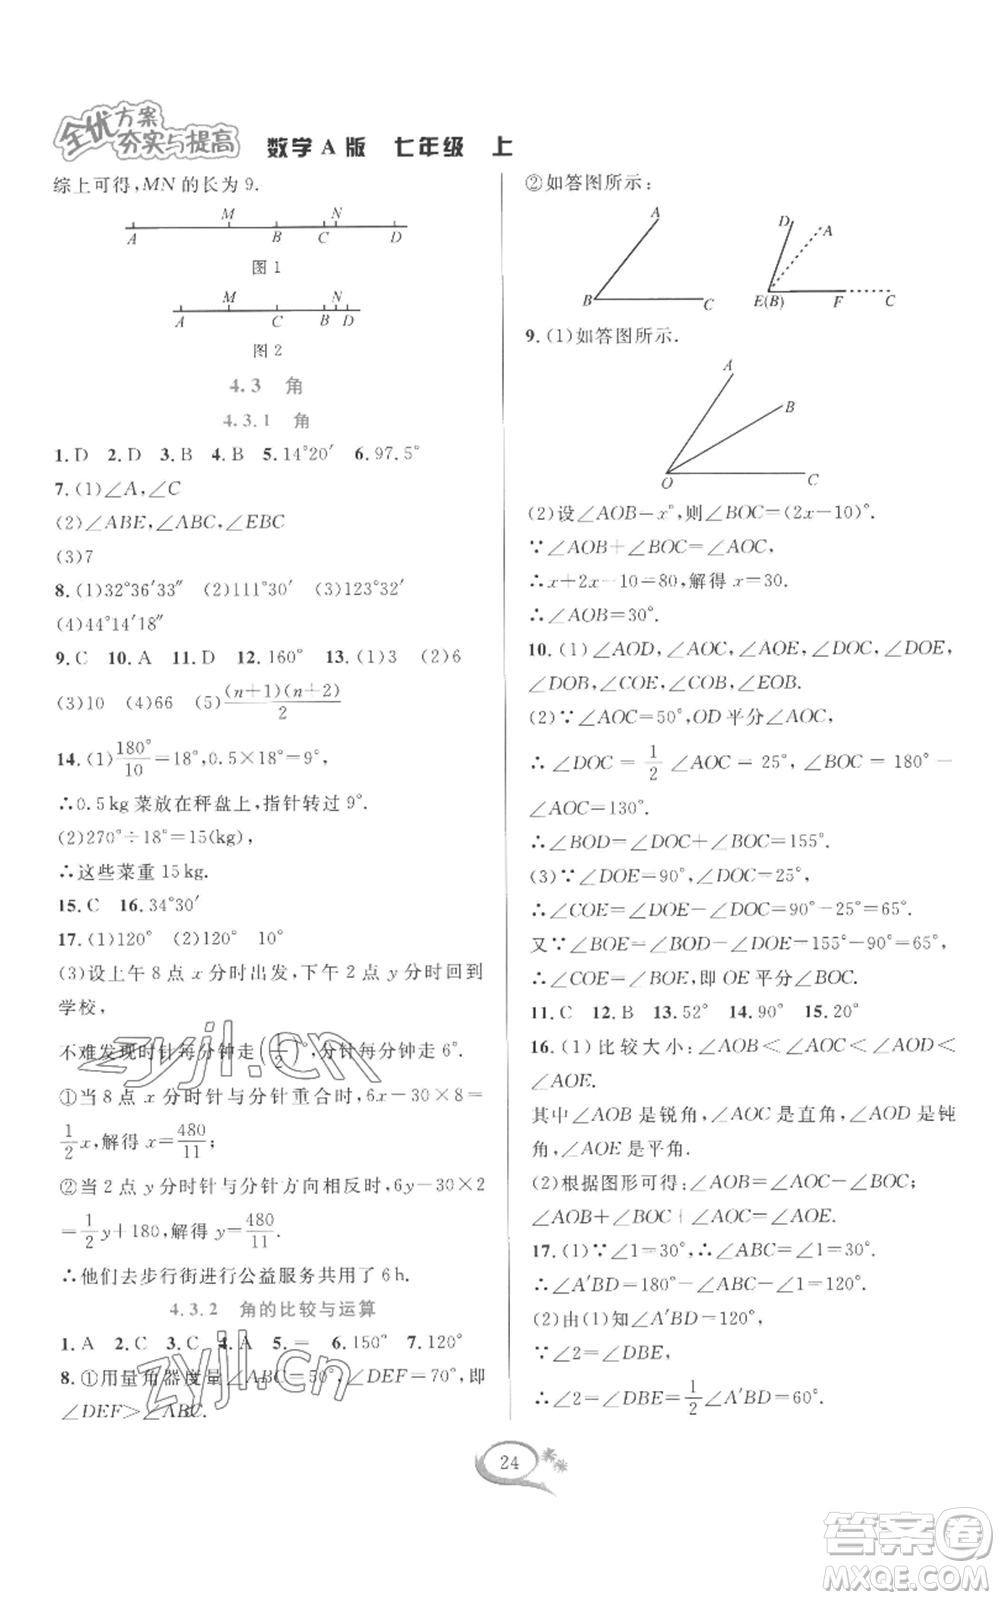 全优方案
夯实与提高
数学A版 七年级 上
综上可得,MN的长为9.
A M B C N D
图1
A M C B N D
图2
4.3 角
4.3.1 角
1.D 2.D 3.B 4.B 5.14°20′ 6.97.5°
7.(1)∠A,∠C
(2)∠ABE,∠ABC,∠EBC
(3)7
8.(1)32°36′33″ (2)111°30′ (3)123°32′
(4)44°14′18″
9.C 10.A 11.D 12.160° 13.(1)3 (2)6
(3)10 (4)66 (5)(n+1)(n+2)/2
14.(1)180°/10=18°,0.5×18°=9°,
∴0.5kg菜放在秤盘上,指针转过9°.
(2)270°÷18°=15(kg),
∴这些菜重15kg.
15.C 16.34°30′
17.(1)120° (2)120° 10°
(3)设上午8点x分时出发,下午2点y分时回到
学校,
不难发现时针每分钟走(1/2)°,分针每分钟走6°.
①当8点x分时针与分针重合时,6x-30×8=
1/2x,解得x=480/11;
②当2点y分时针与分针方向相反时,6y-30×2
=1/2y+180,解得y=480/11.
∴他们去步行街进行公益服务共用了6h.
4.3.2 角的比较与运算
1.A 2.C 3.C 4.A 5.= 6.150° 7.120°
8.①用量角器度量∠ABC=50°,∠DEF=70°,即
∠DEF>∠ABC.
②如答图所示:
A B C
D A E(B) F C
9.(1)如答图所示.
A B O C
(2)设∠AOB=x°,则∠BOC=(2x-10)°.
∵∠AOB+∠BOC=∠AOC,
∴x+2x-10=80,解得x=30.
∴∠AOB=30°.
10.(1)∠AOD,∠AOC,∠AOE,∠DOC,∠DOE,
∠DOB,∠COE,∠COB,∠EOB.
(2)∵∠AOC=50°,OD平分∠AOC,
∴∠DOC=1/2∠AOC=25°,∠BOC=180°-
∠AOC=130°.
∴∠BOD=∠DOC+∠BOC=155°.
(3)∵∠DOE=90°,∠DOC=25°,
∴∠COE=∠DOE-∠DOC=90°-25°=65°.
又∵∠BOE=∠BOD-∠DOE=155°-90°=65°,
∴∠COE=∠BOE,即OE平分∠BOC.
11.C 12.B 13.52° 14.90° 15.20°
16.(1)比较大小:∠AOB<∠AOC<∠AOD<
∠AOE.
其中∠AOB是锐角,∠AOC是直角,∠AOD是钝
角,∠AOE是平角.
(2)根据图形可得:∠AOB=∠AOC-∠BOC,
∠AOB+∠BOC+∠AOC=∠AOE.
17.(1)∵∠1=30°,∴∠ABC=∠1=30°.
∴∠A′BD=180°-∠1-∠ABC=120°.
(2)由(1)知∠A′BD=120°,
∵∠2=∠DBE,
∴∠2=∠DBE=1/2∠A′BD=60°.
24
zyjl.cn
zyjl.cn
答案卷
MXQE.COM